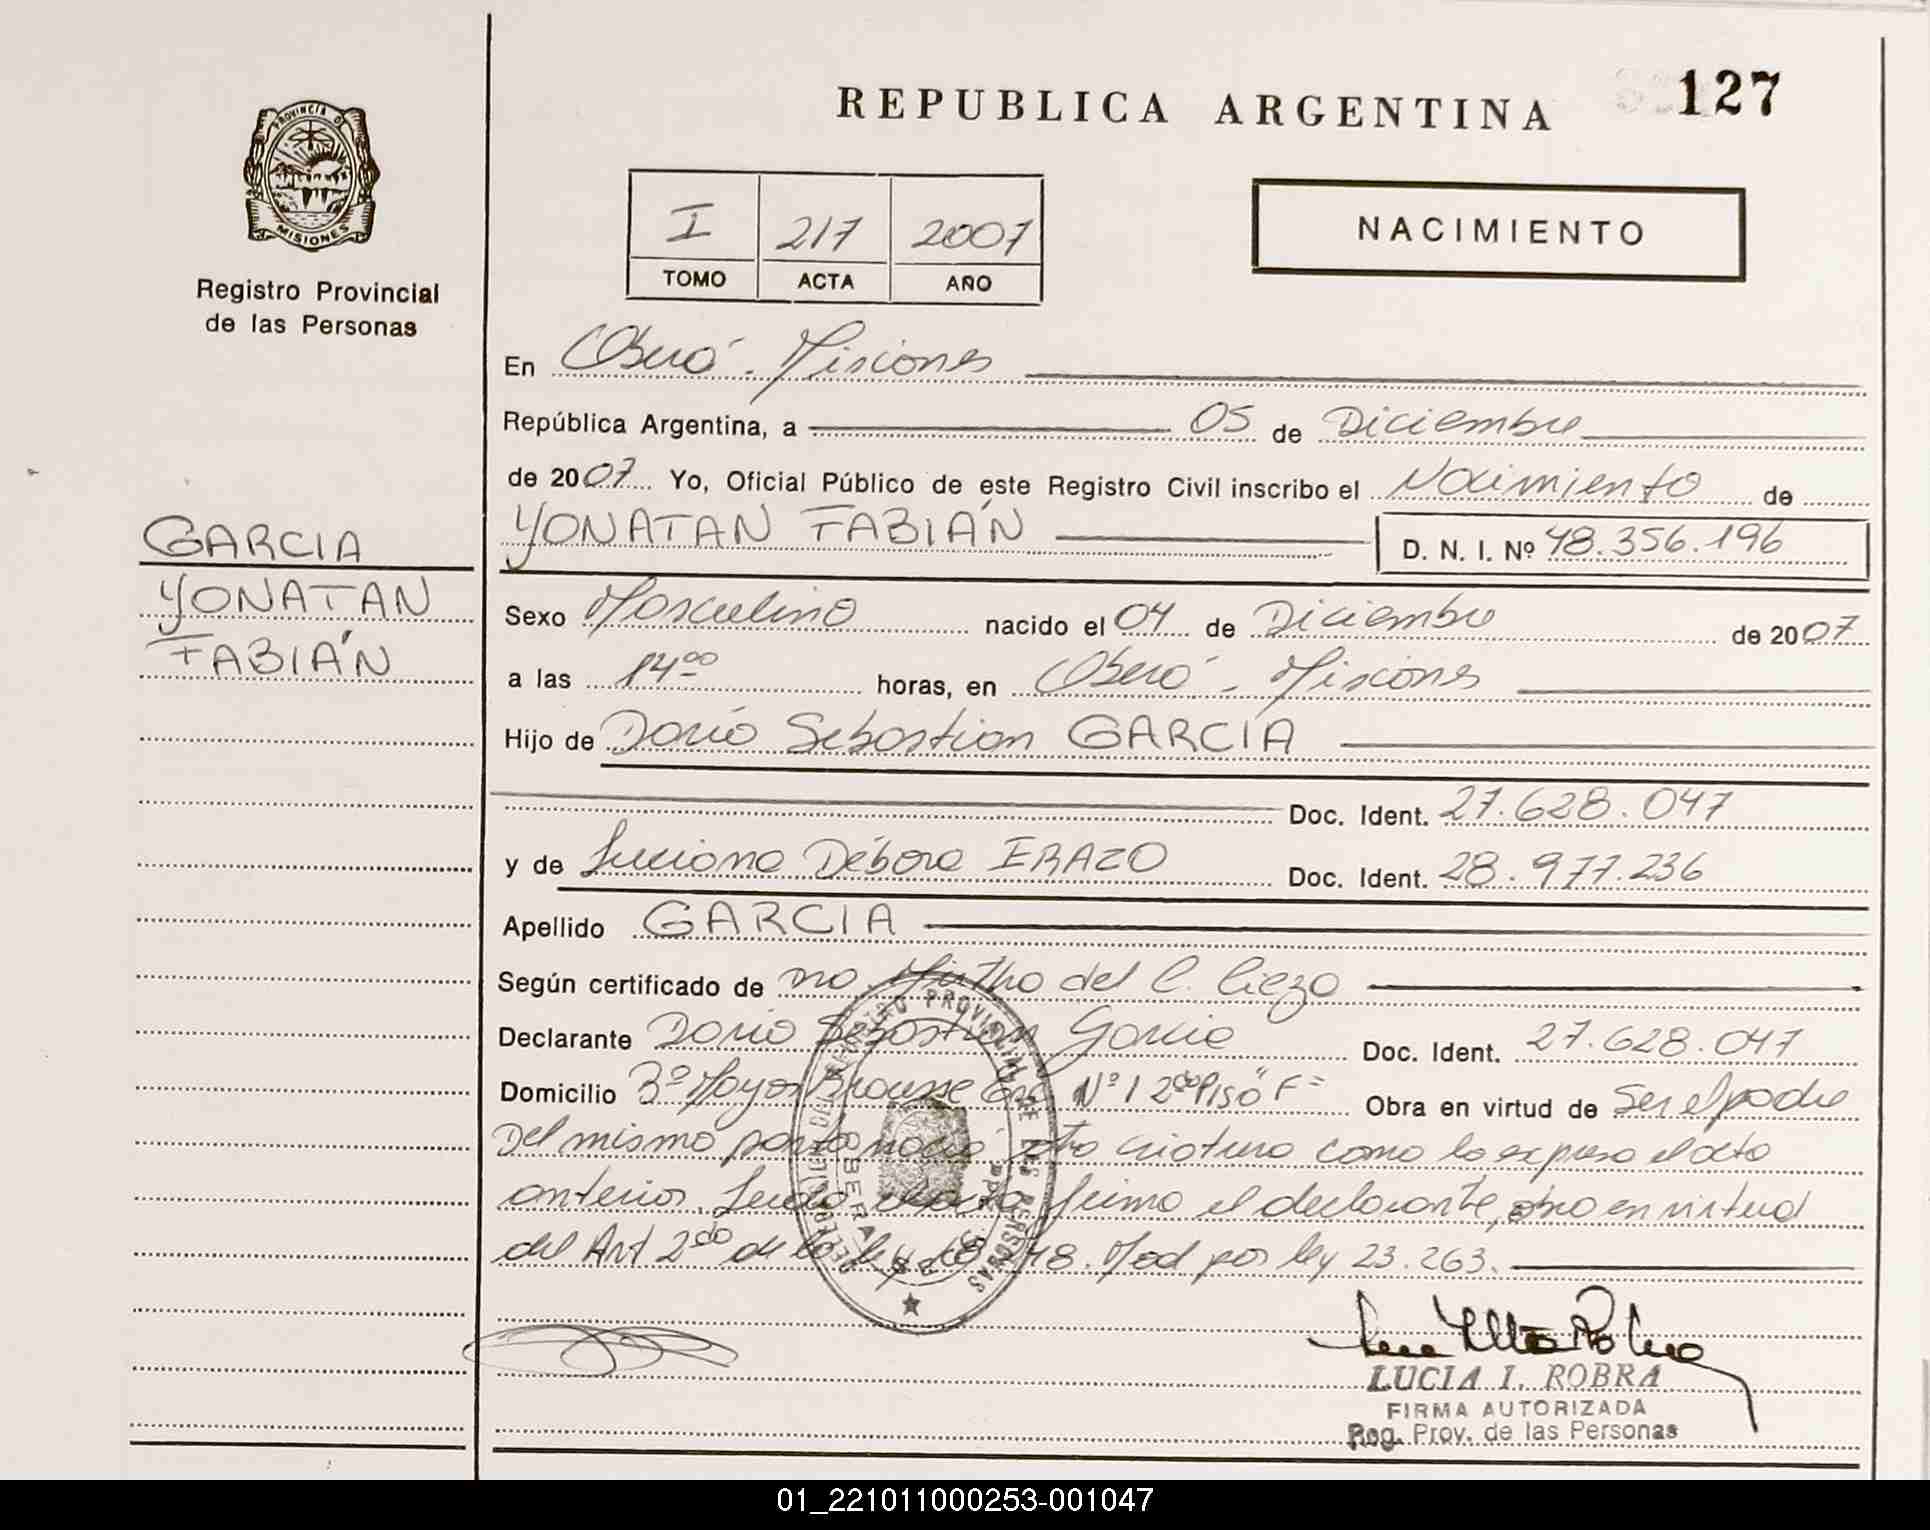 REPUBLICA ARGENTINA
127
PROVINCIA D
MISIONES
Registro Provincial
de las Personas
I 217 2007
TOMO ACTA AÑO
NACIMIENTO
En Oberá - Misiones
República Argentina, a 05 de Diciembre
de 2007 Yo, Oficial Público de este Registro Civil inscribo el Nacimiento de
GARCIA
YONATAN
FABIÁN
YONATAN FABIÁN D. N. I. Nº 48.356.196
Sexo Masculino nacido el 04 de Diciembre de 2007
a las 14ºº horas, en Oberá - Misiones
Hijo de Darío Sebastian GARCÍA
Doc. Ident. 27.628.047
y de Luciana Débora ERAZO Doc. Ident. 28.977.236
Apellido GARCIA
Según certificado de del C.
Declarante Dario Sebastian Garcia Doc. Ident. 27.628.047
Domicilio Nº 1 2do Piso "F" Obra en virtud de Ser el padre
Del mismo otra criatura como lo expresa el acta
anterior. Leída el acta firma el declarante, obro en virtud
del Art 2do de la ley 18.248. Mod por ley 23.263.
REGISTRO PROVINCIAL DE LAS PERSONAS
LUCIA I. ROBRA
FIRMA AUTORIZADA
Reg. Prov. de las Personas
01_221011000253-001047